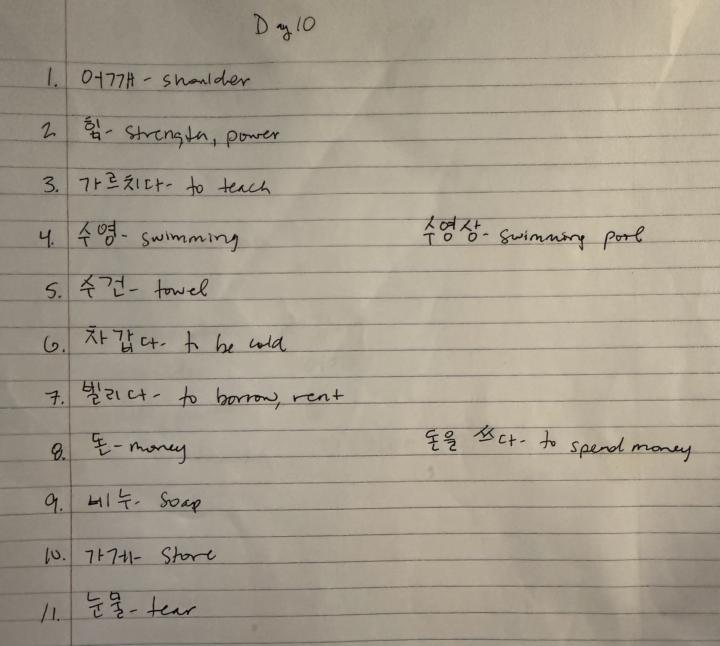 Day 10
1. 어깨 - shoulder
2. 힘 - strength, power
3. 가르치다 - to teach
4. 수영 - swimming 수영상 - swimming pool
5. 수건 - towel
6. 차갑다 - to be cold
7. 빌리다 - to borrow, rent
8. 돈 - money 돈을 쓰다 - to spend money
9. 비누 - soap
10. 가게 - store
11. 눈물 - tear